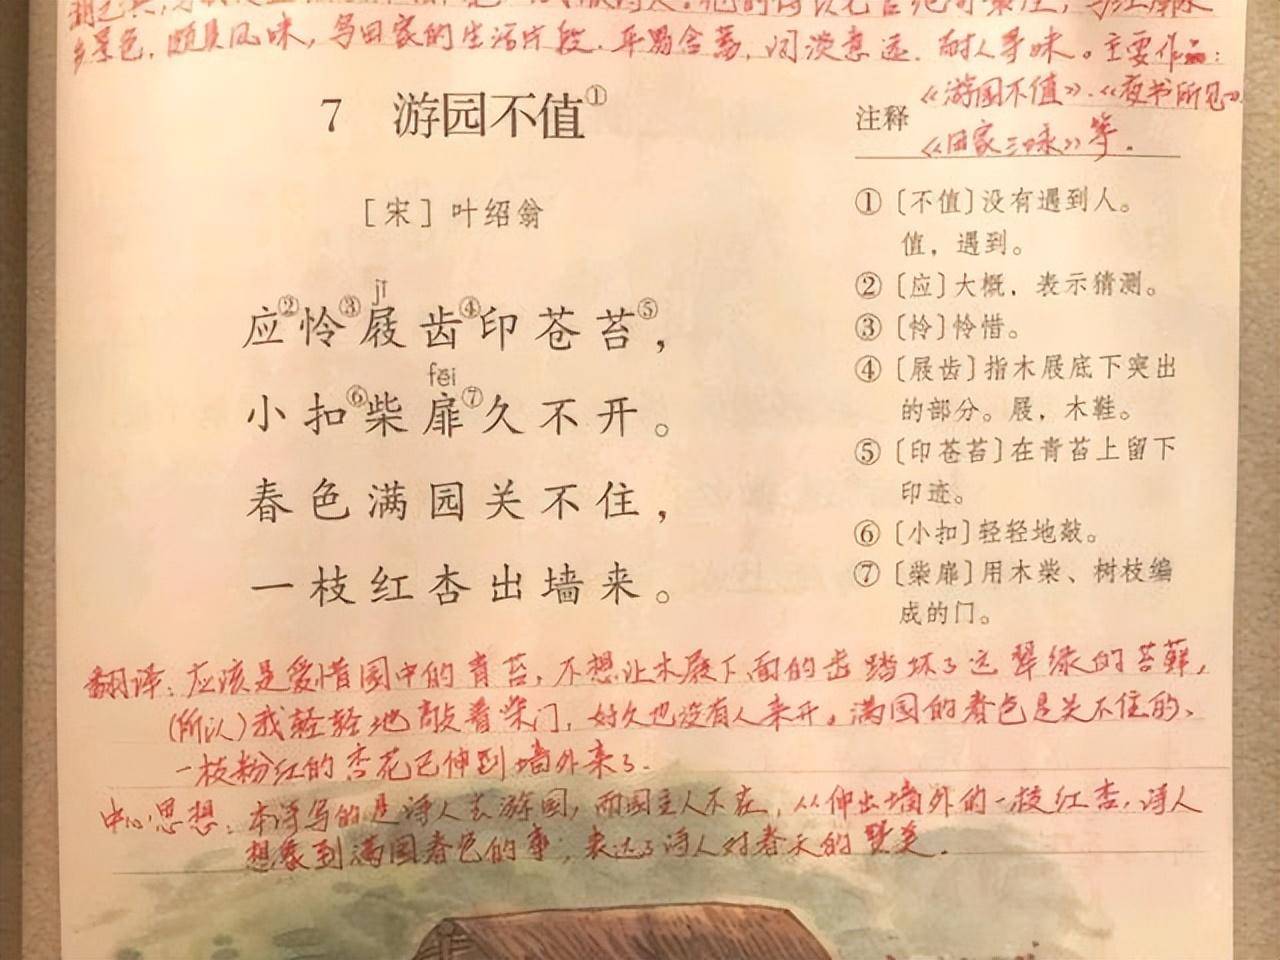 乡景色，颇具风味，写田家的生活片段．平易含蓄，闲淡意远．耐人寻味。主要作品：
《游园不值》．《夜书所见》
《田家三咏》等．
7 游园不值①
［宋］叶绍翁
jī
应②怜③屐齿④印苍苔⑤，
fēi
小扣⑥柴扉⑦久不开。
春色满园关不住，
一枝红杏出墙来。
注释
①［不值］没有遇到人。
值，遇到。
②［应］大概，表示猜测。
③［怜］怜惜。
④［屐齿］指木屐底下突出
的部分。屐，木鞋。
⑤［印苍苔］在青苔上留下
印迹。
⑥［小扣］轻轻地敲。
⑦［柴扉］用木柴、树枝编
成的门。
翻译：应该是爱惜园中的青苔，不想让木屐下面的齿踏坏了这翠绿的苔藓，
（所以）我轻轻地敲着柴门，好久也没有人来开。满园的春色是关不住的、
一枝粉红的杏花已伸到墙外来了．
中心思想：本诗写的是诗人去游园，而园主人不在，从伸出墙外的一枝红杏，诗人
想象到满园春色的事，表达了诗人对春天的赞美．